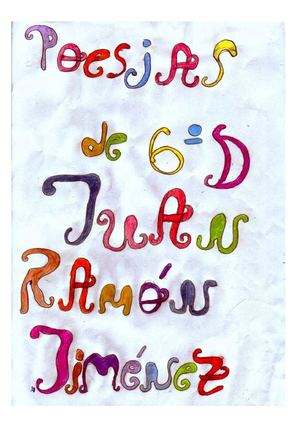 Poesías
de 6º D
Juan
Ramón
Jiménez